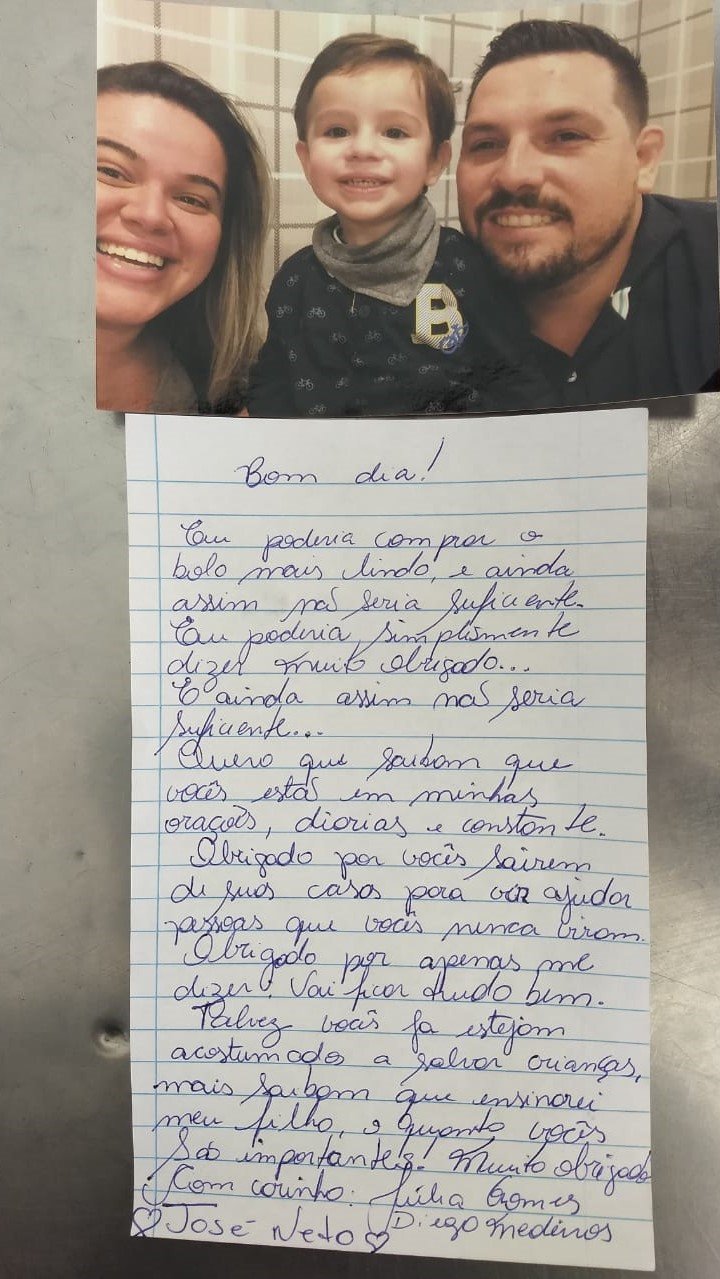 B
Bom dia!
Eu poderia comprar o
bolo mais lindo, e ainda
assim não seria suficiente.
Eu poderia, simplismente
dizer muito obrigado...
E ainda assim não seria
suficiente...
Quero que saibam que
vocês estão em minhas
orações, diarias e constante.
Obrigado por vocês sairem
de suas casas para vir ajudar
pessoas que vocês nunca viram.
Obrigado por apenas me
dizer: Vai ficar tudo bem.
Talvez vocês ja estejam
acostumados a salvar crianças,
mais saibam que ensinarei
meu filho, o quanto vocês
são importantes. Muito obrigado
Com carinho: Júlia Gomes
♡ José Neto ♡ Diego Medeiros